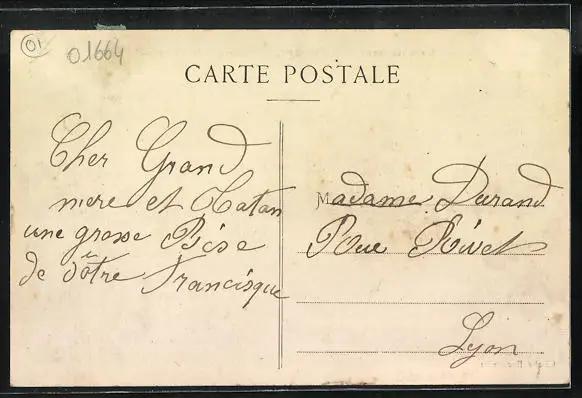 01
01664
CARTE POSTALE
Cher Grand
mere et Tatan
une grosse Bise
de vôtre Francisque
Madame Durand
Rue Rivet
Lyon